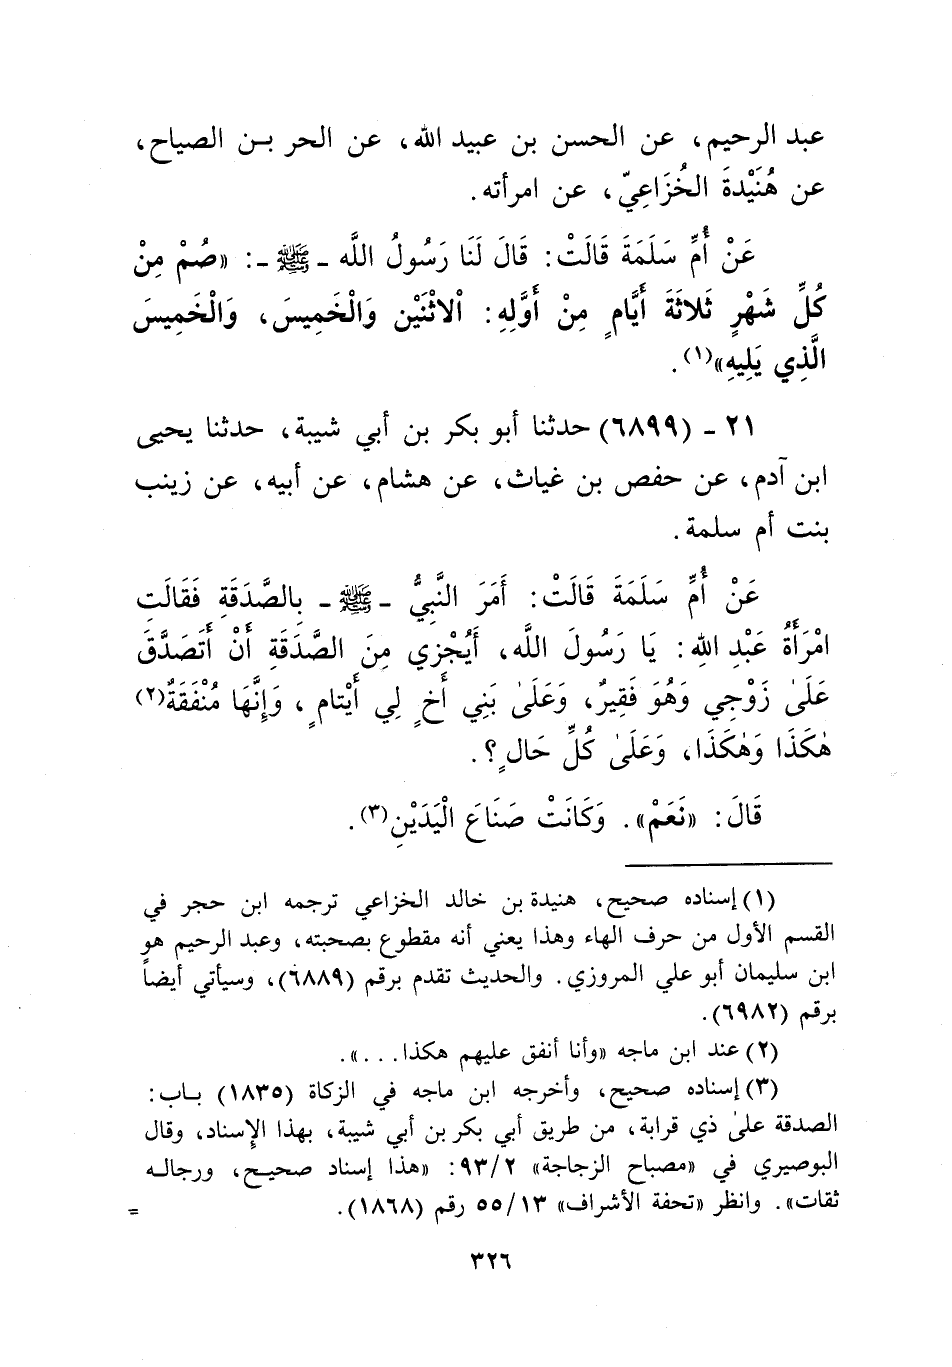 عبد الرحيم، عن الحسن بن عبيد الله، عن الحر بـن الصياح،
عن هُنَيْدةَ الخُزَاعِيّ، عن امرأته.
عَنْ أُمِّ سَلَمَةَ قَالَتْ: قَالَ لَنَا رَسُولُ اللَّه ـ ﷺ ـ: «صُمْ مِنْ
كُلِّ شَهْرٍ ثَلاثَةَ أَيَّامٍ مِنْ أَوَّلِهِ: اْلاثْنَيْنِ وَالْخَمِيسَ، وَالْخَمِيسَ
الَّذِي يَلِيهِ»(١).
٢١ ـ (٦٨٩٩) حدثنا أبو بكر بن أبي شيبة، حدثنا يحيى
ابن آدم، عن حفص بن غياث، عن هشام، عن أبيه، عن زينب
بنت أم سلمة.
عَنْ أُمِّ سَلَمَةَ قَالَتْ: أَمَرَ النَّبِيُّ ـ ﷺ ـ بِالصَّدَقَةِ فَقَالَتِ
امْرَأَةُ عَبْدِ اللهِ: يَا رَسُولَ اللَّه، أَيُجْزِي مِنَ الصَّدَقَةِ أَنْ أَتَصَدَّقَ
عَلَىٰ زَوْجِي وَهُوَ فَقِيرٌ، وَعَلَىٰ بَنِي أَخٍ لِي أَيْتامٍ، وَإِنَّهَا مُنْفَقَةٌ(٢)
هٰكَذَا وَهٰكَذَا، وَعَلَىٰ كُلِّ حَالٍ؟.
قَالَ: «نَعَمْ». وَكَانَتْ صَنَاعَ الْيَدَيْنِ(٣).
(١) إسناده صحيح، هنيدة بن خالد الخزاعي ترجمه ابن حجر في
القسم الأول من حرف الهاء وهذا يعني أنه مقطوع بصحبته، وعبد الرحيم هو
ابن سليمان أبو علي المروزي. والحديث تقدم برقم (٦٨٨٩)، وسيأتي أيضاً
برقم (٦٩٨٢).
(٢) عند ابن ماجه «وأنا أنفق عليهم هكذا...».
(٣) إسناده صحيح، وأخرجه ابن ماجه في الزكاة (١٨٣٥) بـاب:
الصدقة علىٰ ذي قرابة، من طريق أبي بكر بن أبي شيبة، بهذا الإِسناد، وقال
البوصيري في «مصباح الزجاجة» ٩٣/٢: «هذا إسناد صحيـح، ورجالـه
ثقات». وانظر «تحفة الأشراف» ٥٥/١٣ رقم (١٨٦٨). =
٣٢٦